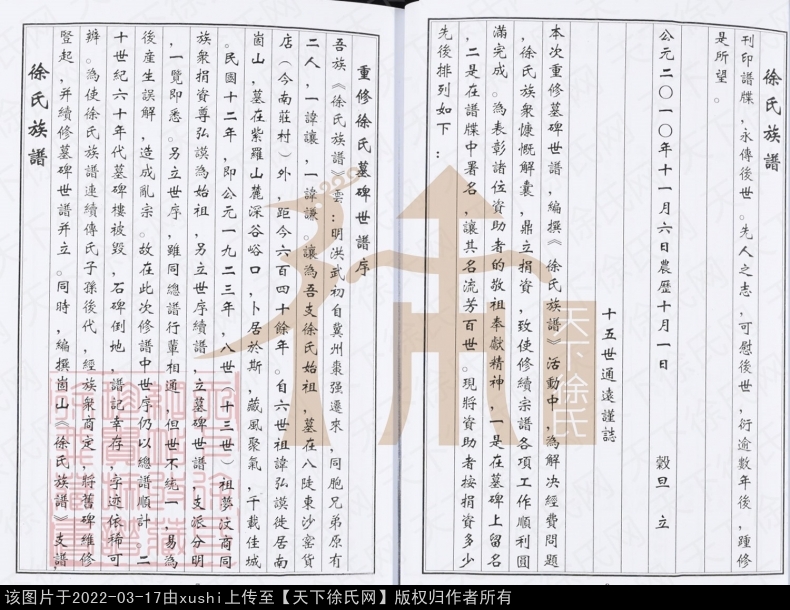 徐氏族譜
刊印譜牒，永傳後世。先人之志，可慰後世，衍逾數年後，踵修
是所望。
公元二〇一〇年十一月六日農歷十月一日 穀旦 立
十五世通遠謹誌
本次重修墓碑世譜，編撰《徐氏族譜》活動中，為解决經費問題
，徐氏族衆慷慨解囊，鼎立捐資，致使修續宗譜各項工作順利圓
滿完成。為表彰諸位資助者的敬祖奉獻精神，一是在墓碑上留名
，二是在譜牒中署名，讓其名流芳百世。現將資助者按捐資多少
先後排列如下：
重修徐氏墓碑世譜序
吾族《徐氏族譜》雲：明洪武初自冀州棗强遷來，同胞兄弟原有
二人，一諱讓，一諱謙。讓為吾支徐氏始祖，墓在八陡東沙窑貨
店（今南莊村）外，距今六百四十餘年。自六世祖諱弘謨徙居南
崮山，墓在紫羅山麓深谷峪口，卜居於斯，藏風聚氣，千載佳城
。民國十二年，即公元一九二三年，八世（十三世）祖夢汶商同
族衆捐資尊弘謨為始祖，另立世序續譜，立墓碑世譜，支派分明
，一覽即悉。另立世序，雖同總譜行輩相通，但世不統一，易為
後産生誤解，造成亂宗。故在此次修譜中世序仍以總譜順計。二
十世紀六十年代墓碑樓被毁，石碑倒地，譜記幸存，字迹依稀可
辨。為使徐氏族譜連續傳氏子孫後代，經族衆商定，將舊碑維修
豎起，并續修墓碑世譜并立。同時，編撰崮山《徐氏族譜》支譜，
徐氏族譜
天下徐氏
该图片于2022-03-17由xushi上传至【天下徐氏网】版权归作者所有